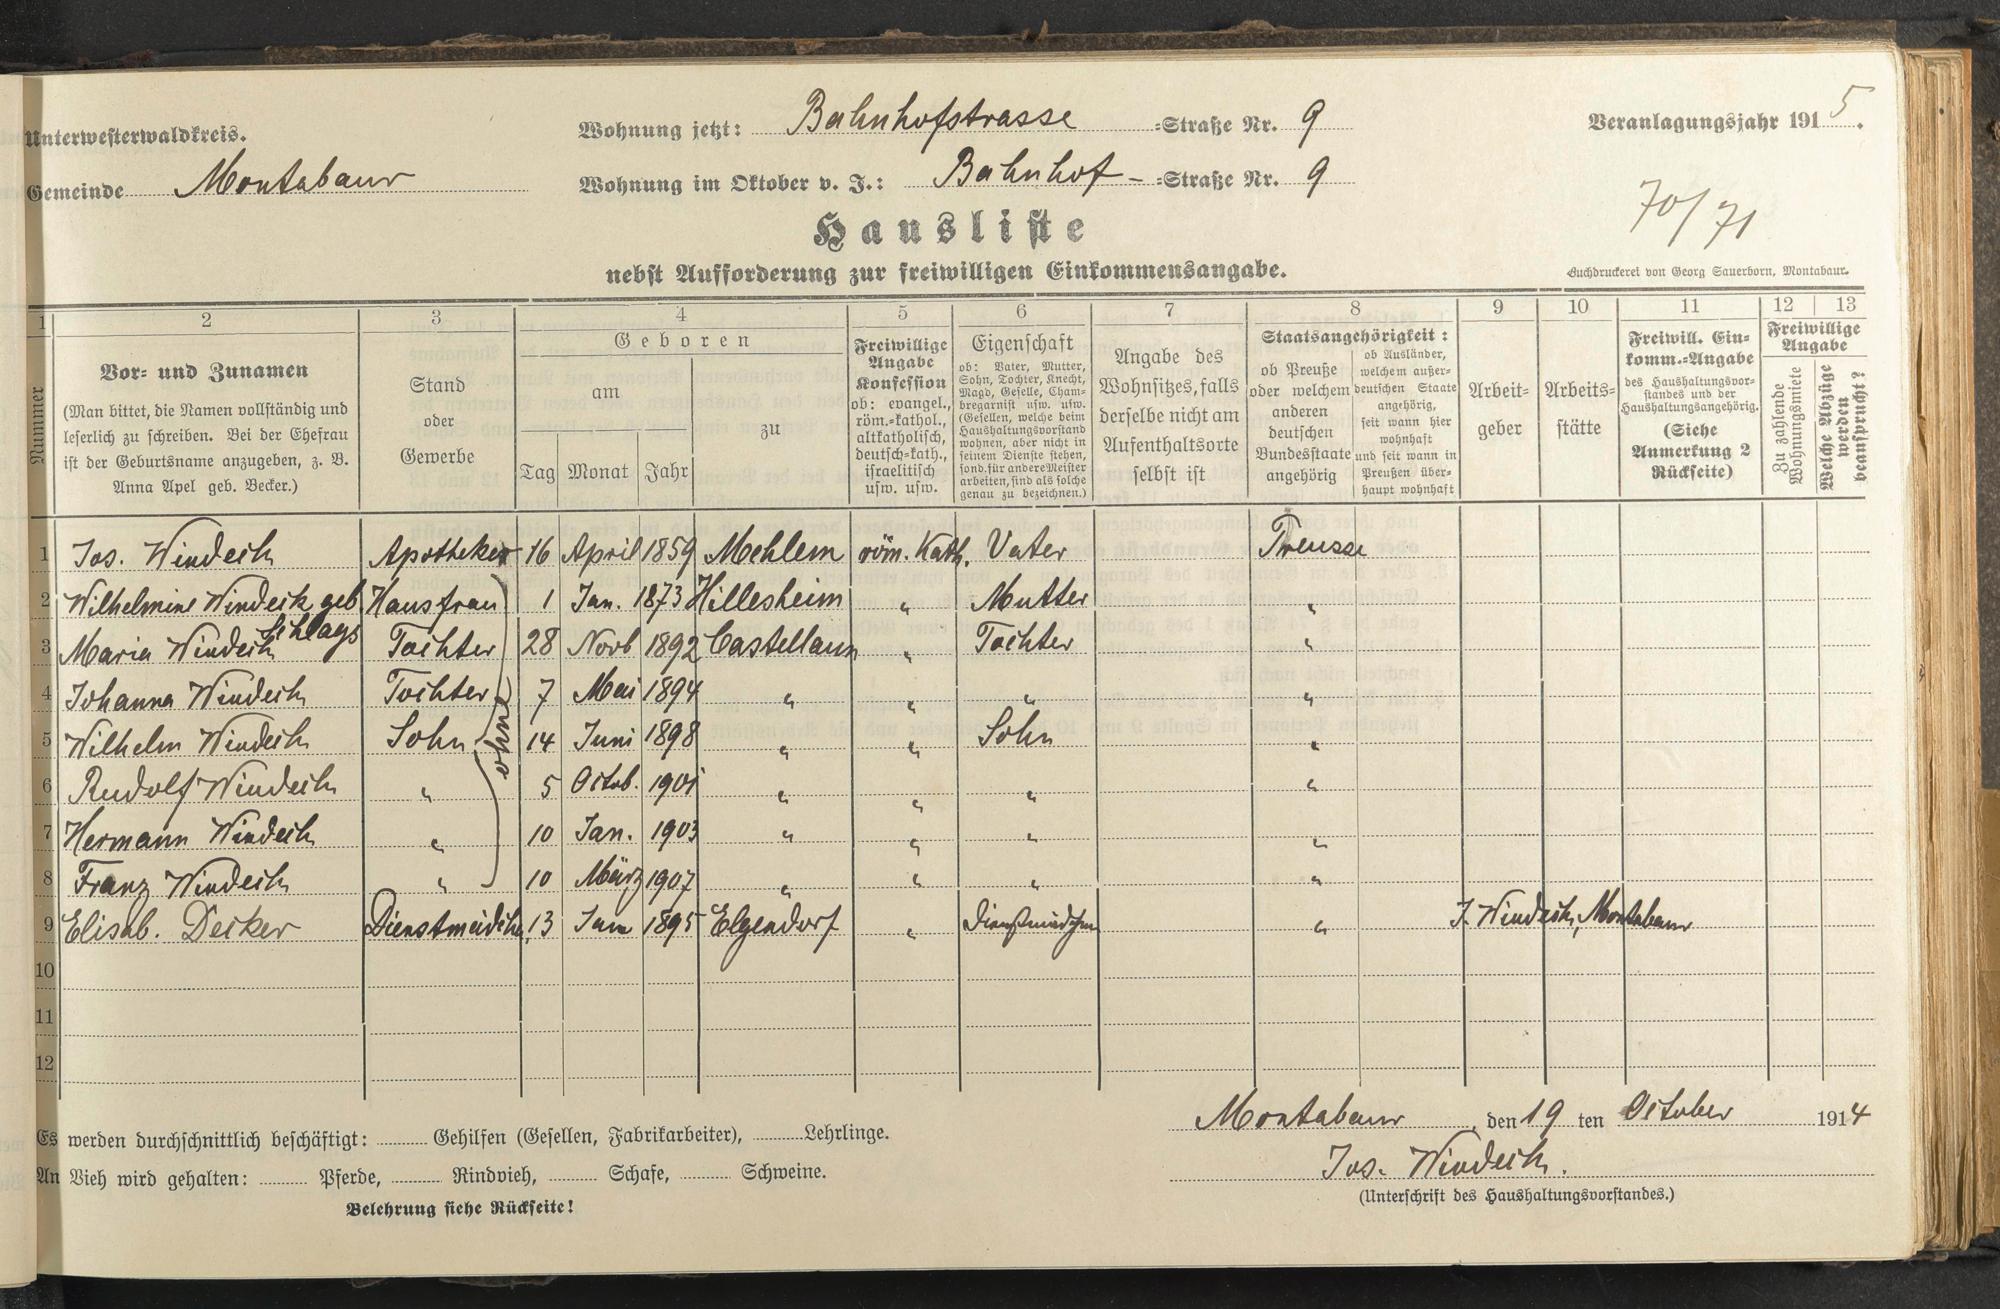 Unterwesterwaldkreis.
Wohnung jetzt: Bahnhofstrasse =Straße Nr. 9
Veranlagungsjahr 1915.
Gemeinde Montabaur
Wohnung im Oktober v. J.: Bahnhof- =Straße Nr. 9
70/71
Hausliste
nebst Aufforderung zur freiwilligen Einkommensangabe.
Buchdruckerei von Georg Sauerborn, Montabaur.
1 2 3 4 5 6 7 8 9 10 11 12 13
Nummer
Vor- und Zunamen
(Man bittet, die Namen vollständig und
leserlich zu schreiben. Bei der Ehefrau
ist der Geburtsname anzugeben, z. B.
Anna Apel geb. Becker.)
Stand
oder
Gewerbe
Geboren
am
zu
Tag Monat Jahr
Freiwillige
Angabe
Konfession
ob: evangel.,
röm.-kathol.,
altkatholisch,
deutsch-kath.,
israelitisch
usw. usw.
Eigenschaft
ob: Vater, Mutter,
Sohn, Tochter, Knecht,
Magd, Geselle, Cham-
bregarnist usw. usw.
(Gesellen, welche beim
Haushaltungsvorstand
wohnen, aber nicht in
seinem Dienste stehen,
sond. für andere Meister
arbeiten, sind als solche
genau zu bezeichnen.)
Angabe des
Wohnsitzes, falls
derselbe nicht am
Aufenthaltsorte
selbst ist
Staatsangehörigkeit:
ob Preuße
oder welchem
anderen
deutschen
Bundesstaate
angehörig
ob Ausländer,
welchem außer-
deutschen Staate
angehörig,
seit wann hier
wohnhaft
und seit wann in
Preußen über-
haupt wohnhaft
Arbeit-
geber
Arbeits-
stätte
Freiwill. Ein-
komm.-Angabe
des Haushaltungsvor-
standes und der
Haushaltungsangehörig.
(Siehe
Anmerkung 2
Rückseite)
Freiwillige
Angabe
Zu zahlende
Wohnungsmiete
Welche Abzüge
werden
beansprucht?
1 Jos. Windeck Apotheker 16 April 1859 Mehlem röm. Kath. Vater Preusse
2 Wilhelmine Windeck geb. Hausfrau 1 Jan. 1873 Hillesheim " Mutter "
Schlags
3 Maria Windeck Tochter 28 Novb 1892 Castellaun " Tochter "
4 Johanna Windeck Tochter 7 Mai 1894 " " " "
ohne
5 Wilhelm Windeck Sohn 14 Juni 1898 " " Sohn "
6 Rudolf Windeck " 5 Octob. 1901 " " " "
7 Hermann Windeck " 10 Jan. 1903 " " " "
8 Franz Windeck " 10 März 1907 " " " "
9 Elisab. Decker Dienstmädchen 13 1895 Elgendorf " Dienstmädchen " J. Windeck, Montabaur
10
11
12
Montabaur, den 19 ten October 1914
Es werden durchschnittlich beschäftigt: Gehilfen (Gesellen, Fabrikarbeiter), Lehrlinge.
Jos. Windeck.
An Vieh wird gehalten: Pferde, Rindvieh, Schafe, Schweine.
(Unterschrift des Haushaltungsvorstandes.)
Belehrung siehe Rückseite!